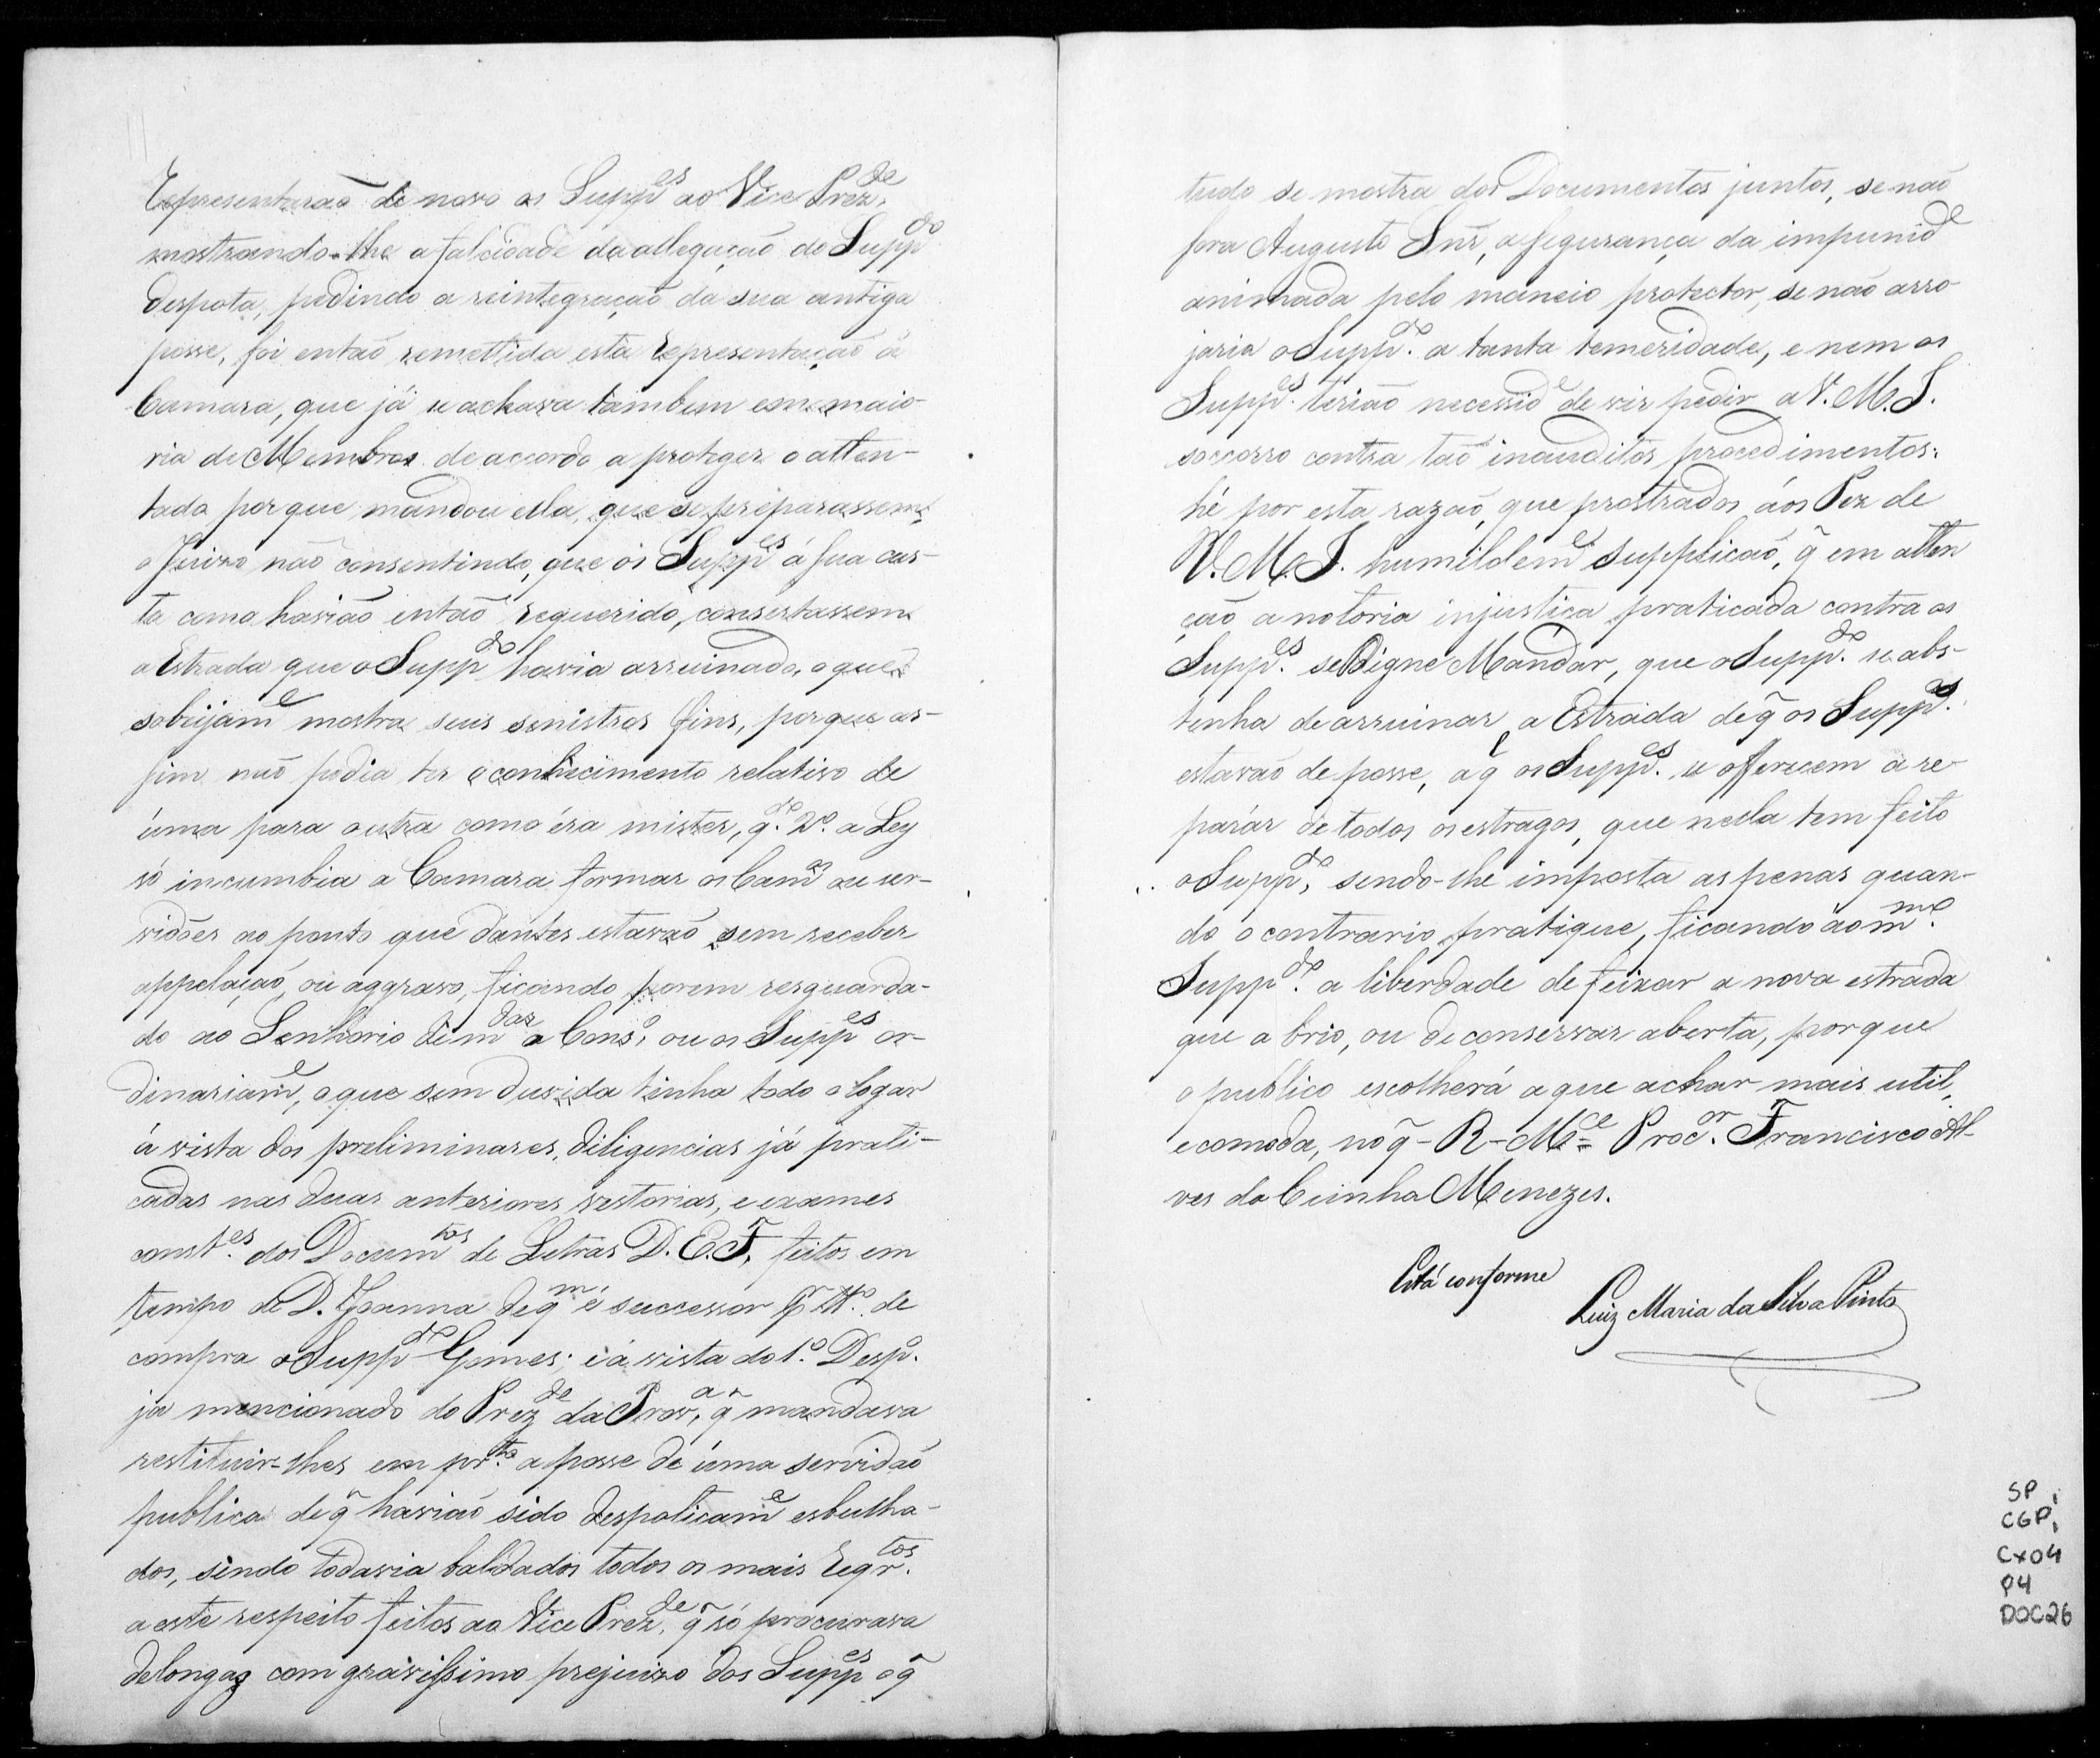 Representarão de novo os Supp.es ao Vice Prez.de
mostrando-lhe a falcidade da allegação do Supp.do
despota, pedindo a reintegração da sua antiga
posse, foi então remettida esta Representação á
Camara, que já se achava tambem em maio-
ria de Membros de accordo a proteger o atten-
tado por que mandou ella, que se preparassem
o Juizo não consentindo, que os Supp.es á sua cus-
ta como havião então requerido, consertassem
a Estrada que o Supp.do havia arruinado, o que
sobejam.e mostra seus senistros fins, porque as-
sim não podia ter o conhecimento relativo de
úma para outra como éra mister, q.do V.o a Ley
só incumbia a Camara tornar os Cam.os ou ser-
vidões ao ponto que dantes estavão sem receber
appelação, ou aggravo, ficando porem resguarda-
do ao Senhorio dem.das a Cons.o ou os Supp.es or-
dinariam.e, o que sem duvida tinha todo o logar
á vista dos preliminares, diligencias já prati-
cadas nas duas anteriores vestorias, e exames
const.es dos Docum.tos de Letras D. E. F. feitos em
tempo de D. Joanna de q.m é successor p.r tt.o de
compra o Supp.do Gomes; e á vista do 1.o Desp.o
ja mencionado do Prez.de da Prov.a, q̃ mandava
restituir-lhes em pr.to a posse de úma servidão
publica de q̃ havião sido despoticam.e esbulha-
dos, sendo todavia baldados todos os mais Reqr.tos
a este respeito feitos ao Vice Prez.de q̃ só procurava
delongas com gravissimo prejuizo dos Supp.es o q̃
tudo se mostra dos Documentos juntos, se não
fora Augusto Snr̃, a segurança da impunid.e
animada pelo maneio protector, se não arro
jaria o Supp.do a tanta temeridade, e nem os
Supp.es terião necessid.e de vir pedir a V. M. I.
soccorro contra tão inauditos procedimentos:
hé por esta razão, que prostrados áos Pez de
V. M. I. humildem.e supplicão, q̃ em atten
ção a notoria injustiça praticada contra os
Supp.es se Digne Mandar, que o Supp.do se abs-
tenha de arruinar a Estrada de q̃ os Supp.es
estavão de posse, a q̃ os Supp.es se offerecem á re-
parár de todos os estragos, que nella tem feito
o Supp.do, sendo-lhe imposta as penas quan-
do o contrario pratique, ficando áo m.mo
Supp.do a liberdade de feixar a nova estrada
que abrio, ou de conservar aberta, porque
o publico escolherá a que achar mais util,
e comoda, no q̃ - R - M.ce = Proc.or Francisco Al-
ves da Cunha Menezes.
Está conforme
Luiz Maria da Silva Pinto
SP
CGP,
Cx04
P4
DOC26